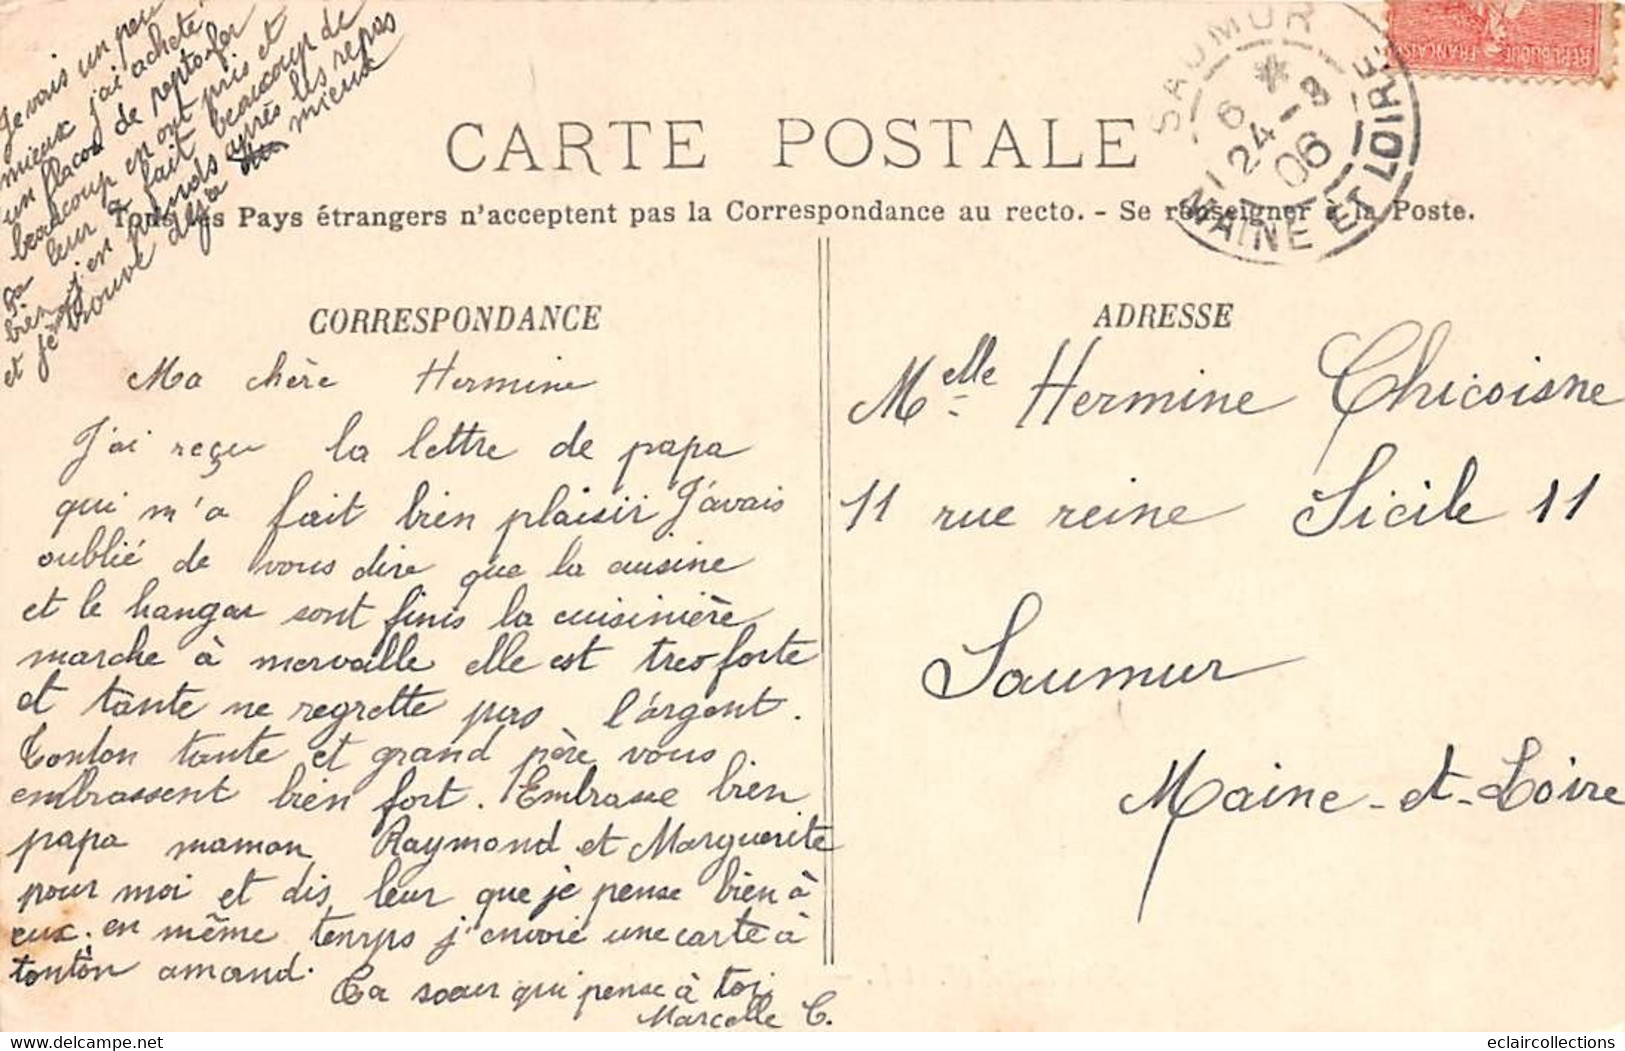 Je vais un peu
mieux j'ai acheté
un flacon de pepto-fer
beaucoup en ont pris et
ça leur a fait beaucoup de
bien j'en prends après les repas
et je me trouve déjà mieux
CARTE POSTALE
Tous les Pays étrangers n'acceptent pas la Correspondance au recto. - Se renseigner à la Poste.
SAUMUR
6 *
24 - 9
06
MAINE ET LOIRE
RÉPUBLIQUE FRANÇAISE
CORRESPONDANCE
Ma chère Hermine
J'ai reçu la lettre de papa
qui m'a fait bien plaisir J'avais
oublié de vous dire que la cuisine
et le hangar sont finis la cuisinière
marche à mervaille elle est tres forte
et tante ne regrette pas l'argent.
Tonton tante et grand père vous
embrassent bien fort. Embrasse bien
papa maman Raymond et Marguerite
pour moi et dis leur que je pense bien à
eux. en même temps j'envoie une carte à
tonton amand.
Ta sœur qui pense à toi
Marcelle C.
ADRESSE
Melle Hermine Chicoisne
11 rue reine Sicile 11
Saumur
Maine-et-Loire
www.delcampe.net
eclaircollections